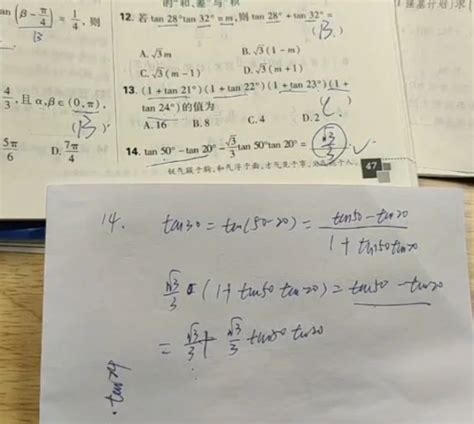 的"和、差"与"积
an(β-π/4)=1/4,则
B
4/3,且α,β∈(0,π),
(B)
5π/6 D.7π/4
12. 若tan 28°tan 32°=m,则tan 28°+tan 32°=
(B.)
A.√3m B.√3(1-m)
C.√3(m-1) D.√3(m+1)
13. (1+tan 21°)(1+tan 22°)(1+tan 23°)(1+
tan 24°)的值为
A.16 B.8 C.4 D.2
14. tan 50°-tan 20°-√3/3tan 50°tan 20°= √3/3
47
14. tan30=tan(50-20)=tan50-tan20/1+tan50tan20
√3/3(1+tan50 tan20)=tan50-tan20
=√3/3+√3/3tan50 tan20